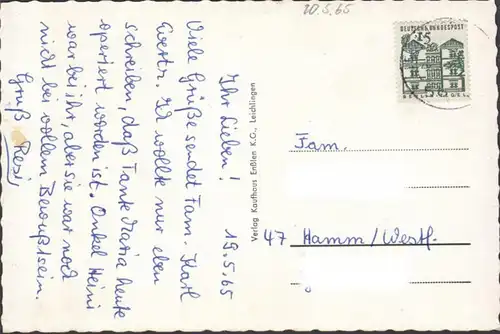 20.5.65
19.5.65
Ihr Lieben!
Viele Grüße sendet Fam. Karl
Ewertz. Ich wollte nur eben
schreiben, daß Tante Maria heute
operiert worden ist. Onkel Heini
war bei ihr, aber sie war noch
nicht bei vollem Bewußtsein.
Gruß Resi
Verlag Kaufhaus Enßlen K.G., Leichlingen
15
DEUTSCHE BUNDESPOST
Fam.
47 Hamm/Westf.